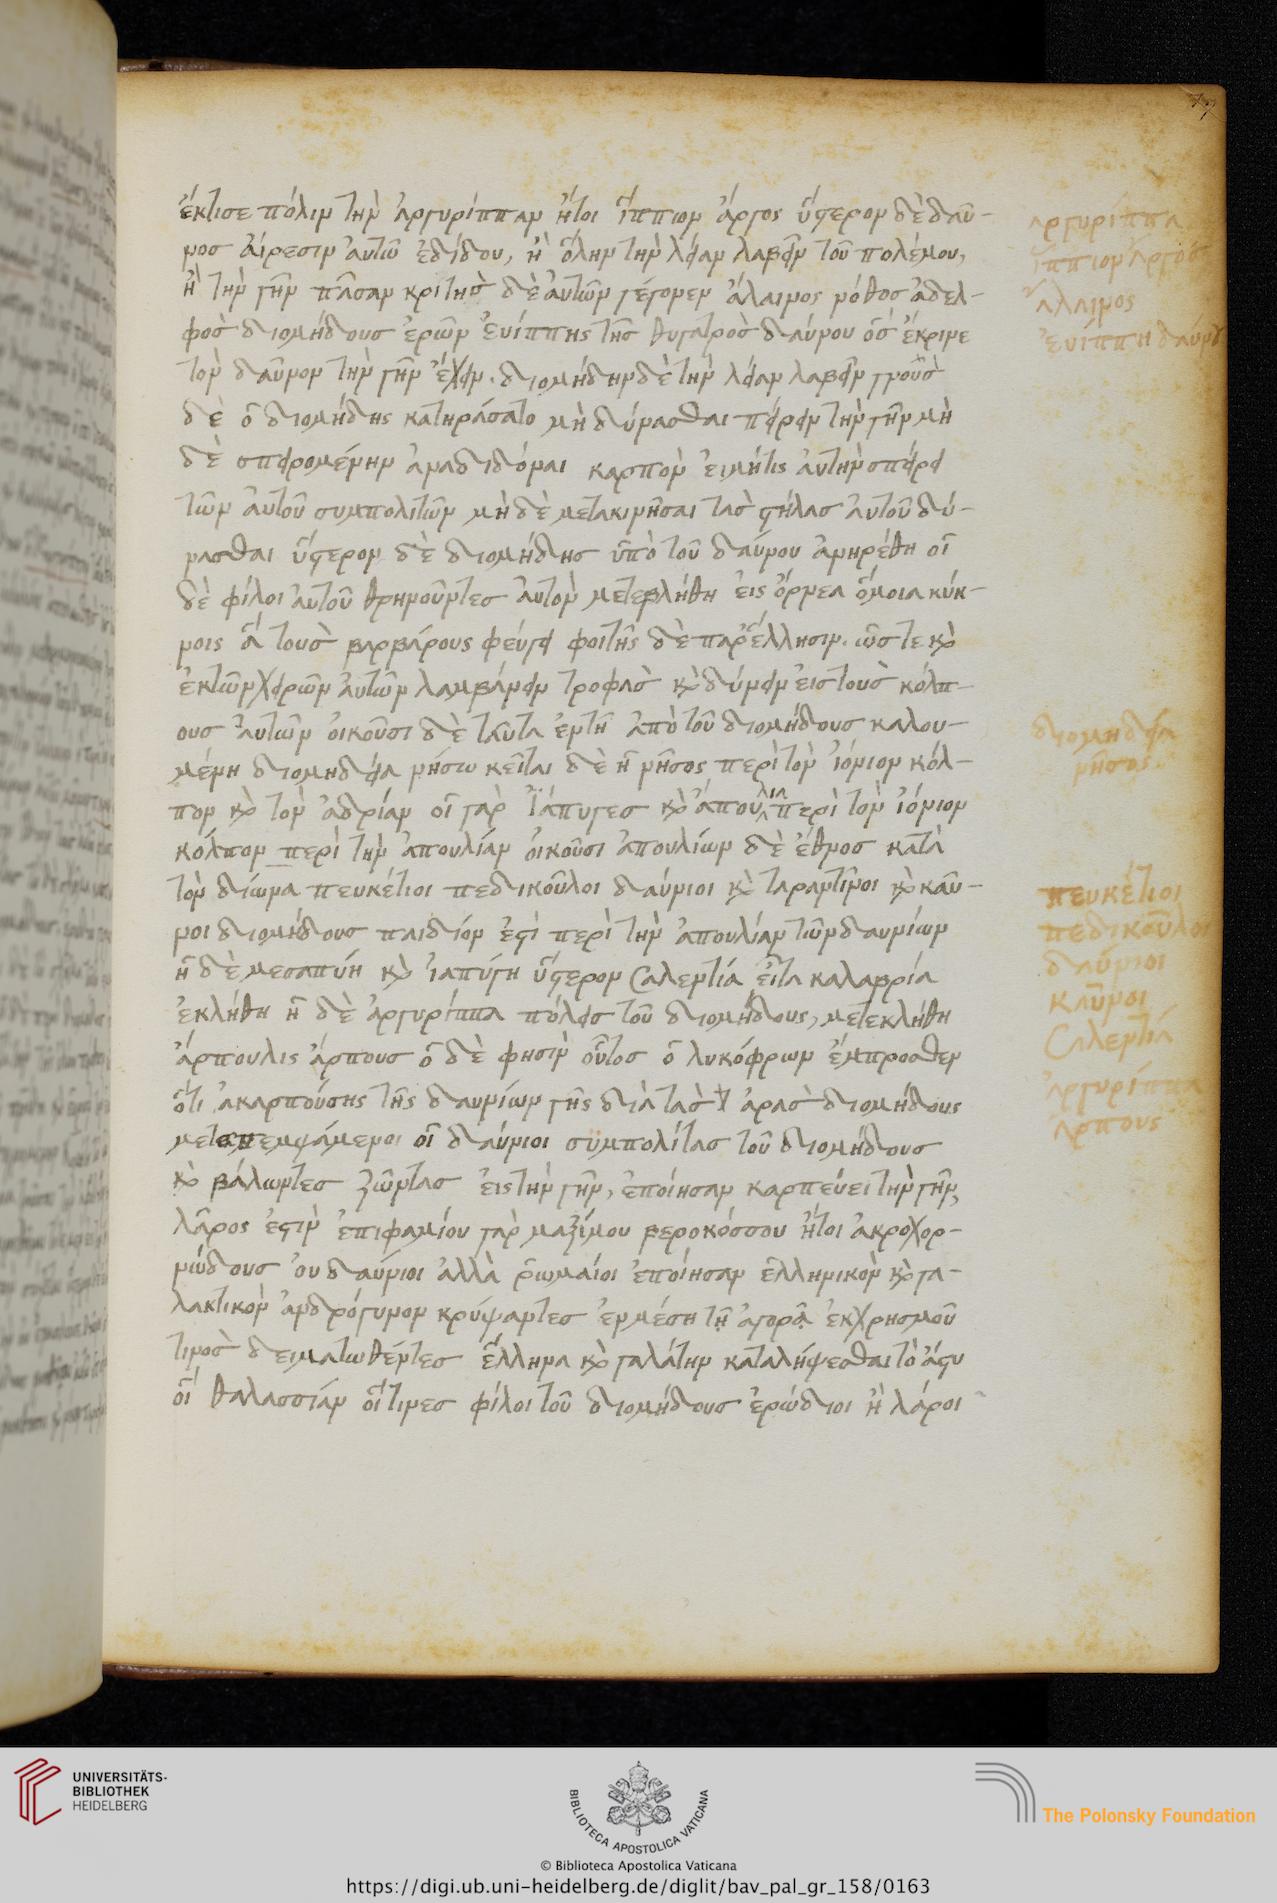 ἔκτισε πόλιν τὴν ἀργυρίππαν ἤτοι ἵππιον ἄργος ὕστερον δὲ δαῦ-
νος αἵρεσιν αὐτῶ ἐδίδου, ἢ ὅλην τὴν λείαν λαβεῖν τοῦ πολέμου,
ἢ τὴν γῆν πᾶσαν κριτὴς δὲ αὐτῶν γέγονεν ἄλαινος νόθος ἀδελ-
φὸς διομήδους ἐρῶν ἐυίππης τῆς θυγατρὸς δαύνου ὃς ἔκρινε
τὸν δαῦνον τὴν γῆν ἔχειν. διομήδην δὲ τὴν λείαν λαβεῖν γνοὺς
δὲ ὁ διομήδης κατηράσατο μὴ δύνασθαι πείρειν τὴν γῆν μὴ
δὲ σπειρομένην ἀναδιδόναι καρπὸν εἰμήτις αὐτὴν σπείρει
τῶν αὐτοῦ συμπολιτῶν μὴ δὲ μετακινῆσαι τὰς στήλας αὐτοῦ δύ-
νασθαι ὕστερον δὲ διομήδης ὑπὸ τοῦ δαύνου ἀνηρέθη οἱ
δὲ φίλοι αὐτοῦ θρηνοῦντες αὐτὸν μετεβλήθη εἰς ὄρνεα ὅμοια κύκ-
νοις ἃ τοὺς βαρβάρους φεύγει φοιτῆς δὲ παρ' ἕλλησιν. ὥστε καὶ
ἐκ τῶν χειρῶν αὐτῶν λαμβάνειν τροφὰς καὶ δύνειν εἰς τοὺς κόλπ-
ους αὐτῶν οἰκοῦσι δὲ ταῦτα ἐν τῆ ἀπὸ τοῦ διομήδους καλου-
μένη διομηδεία νήσω κεῖται δὲ ἡ νῆσος περὶ τὸν ἰόνιον κόλ-
πον καὶ τὸν ἀδρίαν οἱ γὰρ ἰάπυγες καὶ ἀπούλιοι περὶ τὸν ἰόνιον
κόλπον περὶ τὴν ἀπουλίαν οἰκοῦσι ἀπουλίων δὲ ἔθνος κατὰ
τὸν δίωνα πευκέτιοι πεδικοῦλοι δαύνιοι καὶ ταραντῖνοι καὶ καῦ-
νοι διομήδους παιδίον ἐστὶ περὶ τὴν ἀπουλίαν τῶν δαυνίων
ἡ δὲ μεσαπύη καὶ ἰαπύγη ὕστερον σαλεντία εἶτα καλαβρία
ἐκλήθη ἡ δὲ ἀργυρίππα πόλεις τοῦ διομήδους, μετεκλήθη
ἄρπουλις ἄρπους ὁ δὲ φησὶν οὗτος ὁ λυκόφρων ἔμπροσθεν
ὅτι ἀκαρπούσης τῆς δαυνίων γῆς διὰ τὰς ἀρὰς διομήδους
μεταπεμψάμενοι οἱ δαύνιοι συμπολίτας τοῦ διομήδους
καὶ βάλωντες ζῶντας εἰς τὴν γῆν, ἐποίησαν καρπεύει τὴν γῆν,
λῆρος ἐστὶν ἐπιφανίου γὰρ μαξίμου βεροκόσσου ἤτοι ἀκροχορ-
νώδους ὀυ δαύνιοι ἀλλὰ ῥωμαίοι ἐποίησαν ἑλληνικὸν καὶ γα-
λακτικὸν ἀνδρόγυνον κρύψαντες ἐν μέση τῇ ἀγορᾷ ἐκ χρησμοῦ
τινὸς δειματωθέντες ἕλληνα καὶ γαλάτην καταλήψεσθαι τὸ ἄστυ
οἱ θαλασσίαν οἵτινες φίλοι τοῦ διομήδους ἐρώδιοι ἢ λάροι
ἀργυρίππα
ἵππιον ἄργος
ἄλαινος
ἐυίππη δαύνου
διομηδεία
νῆσος.
πευκέτιοι
πεδικοῦλοι
δαύνιοι
καῦνοι
σαλεντία
ἀργυρίππα
ἄρπους
UNIVERSITÄTS-
BIBLIOTHEK
HEIDELBERG
BIBLIOTECA APOSTOLICA VATICANA
The Polonsky Foundation
© Biblioteca Apostolica Vaticana
https://digi.ub.uni-heidelberg.de/diglit/bav_pal_gr_158/0163